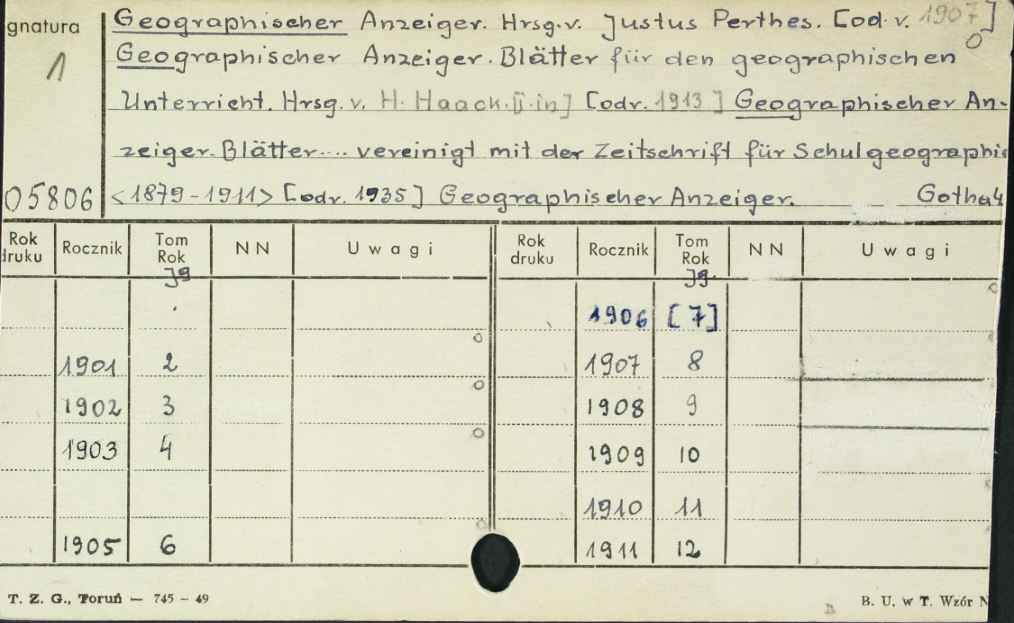 gnatura
1
05806
Geographischer Anzeiger. Hrsg. v. Justus Perthes. [od. v. 1907]
Geographischer Anzeiger. Blätter für den geographischen
Unterricht. Hrsg. v. H. Haack. [i in] [odr. 1913] Geographischer An-
zeiger. Blätter.... vereinigt mit der Zeitschrift für Schulgeographie
<1879-1911> [odr. 1935] Geographischer Anzeiger. Gotha
Rok druku Rocznik Tom Rok NN Uwagi Rok druku Rocznik Tom Rok NN Uwagi
Jg Jg.
1906 [7]
1901 2 1907 8
1902 3 1908 9
1903 4 1909 10
1910 11
1905 6 1911 12
T. Z. G., Toruń — 745 – 49 B. U. w T. Wzór N